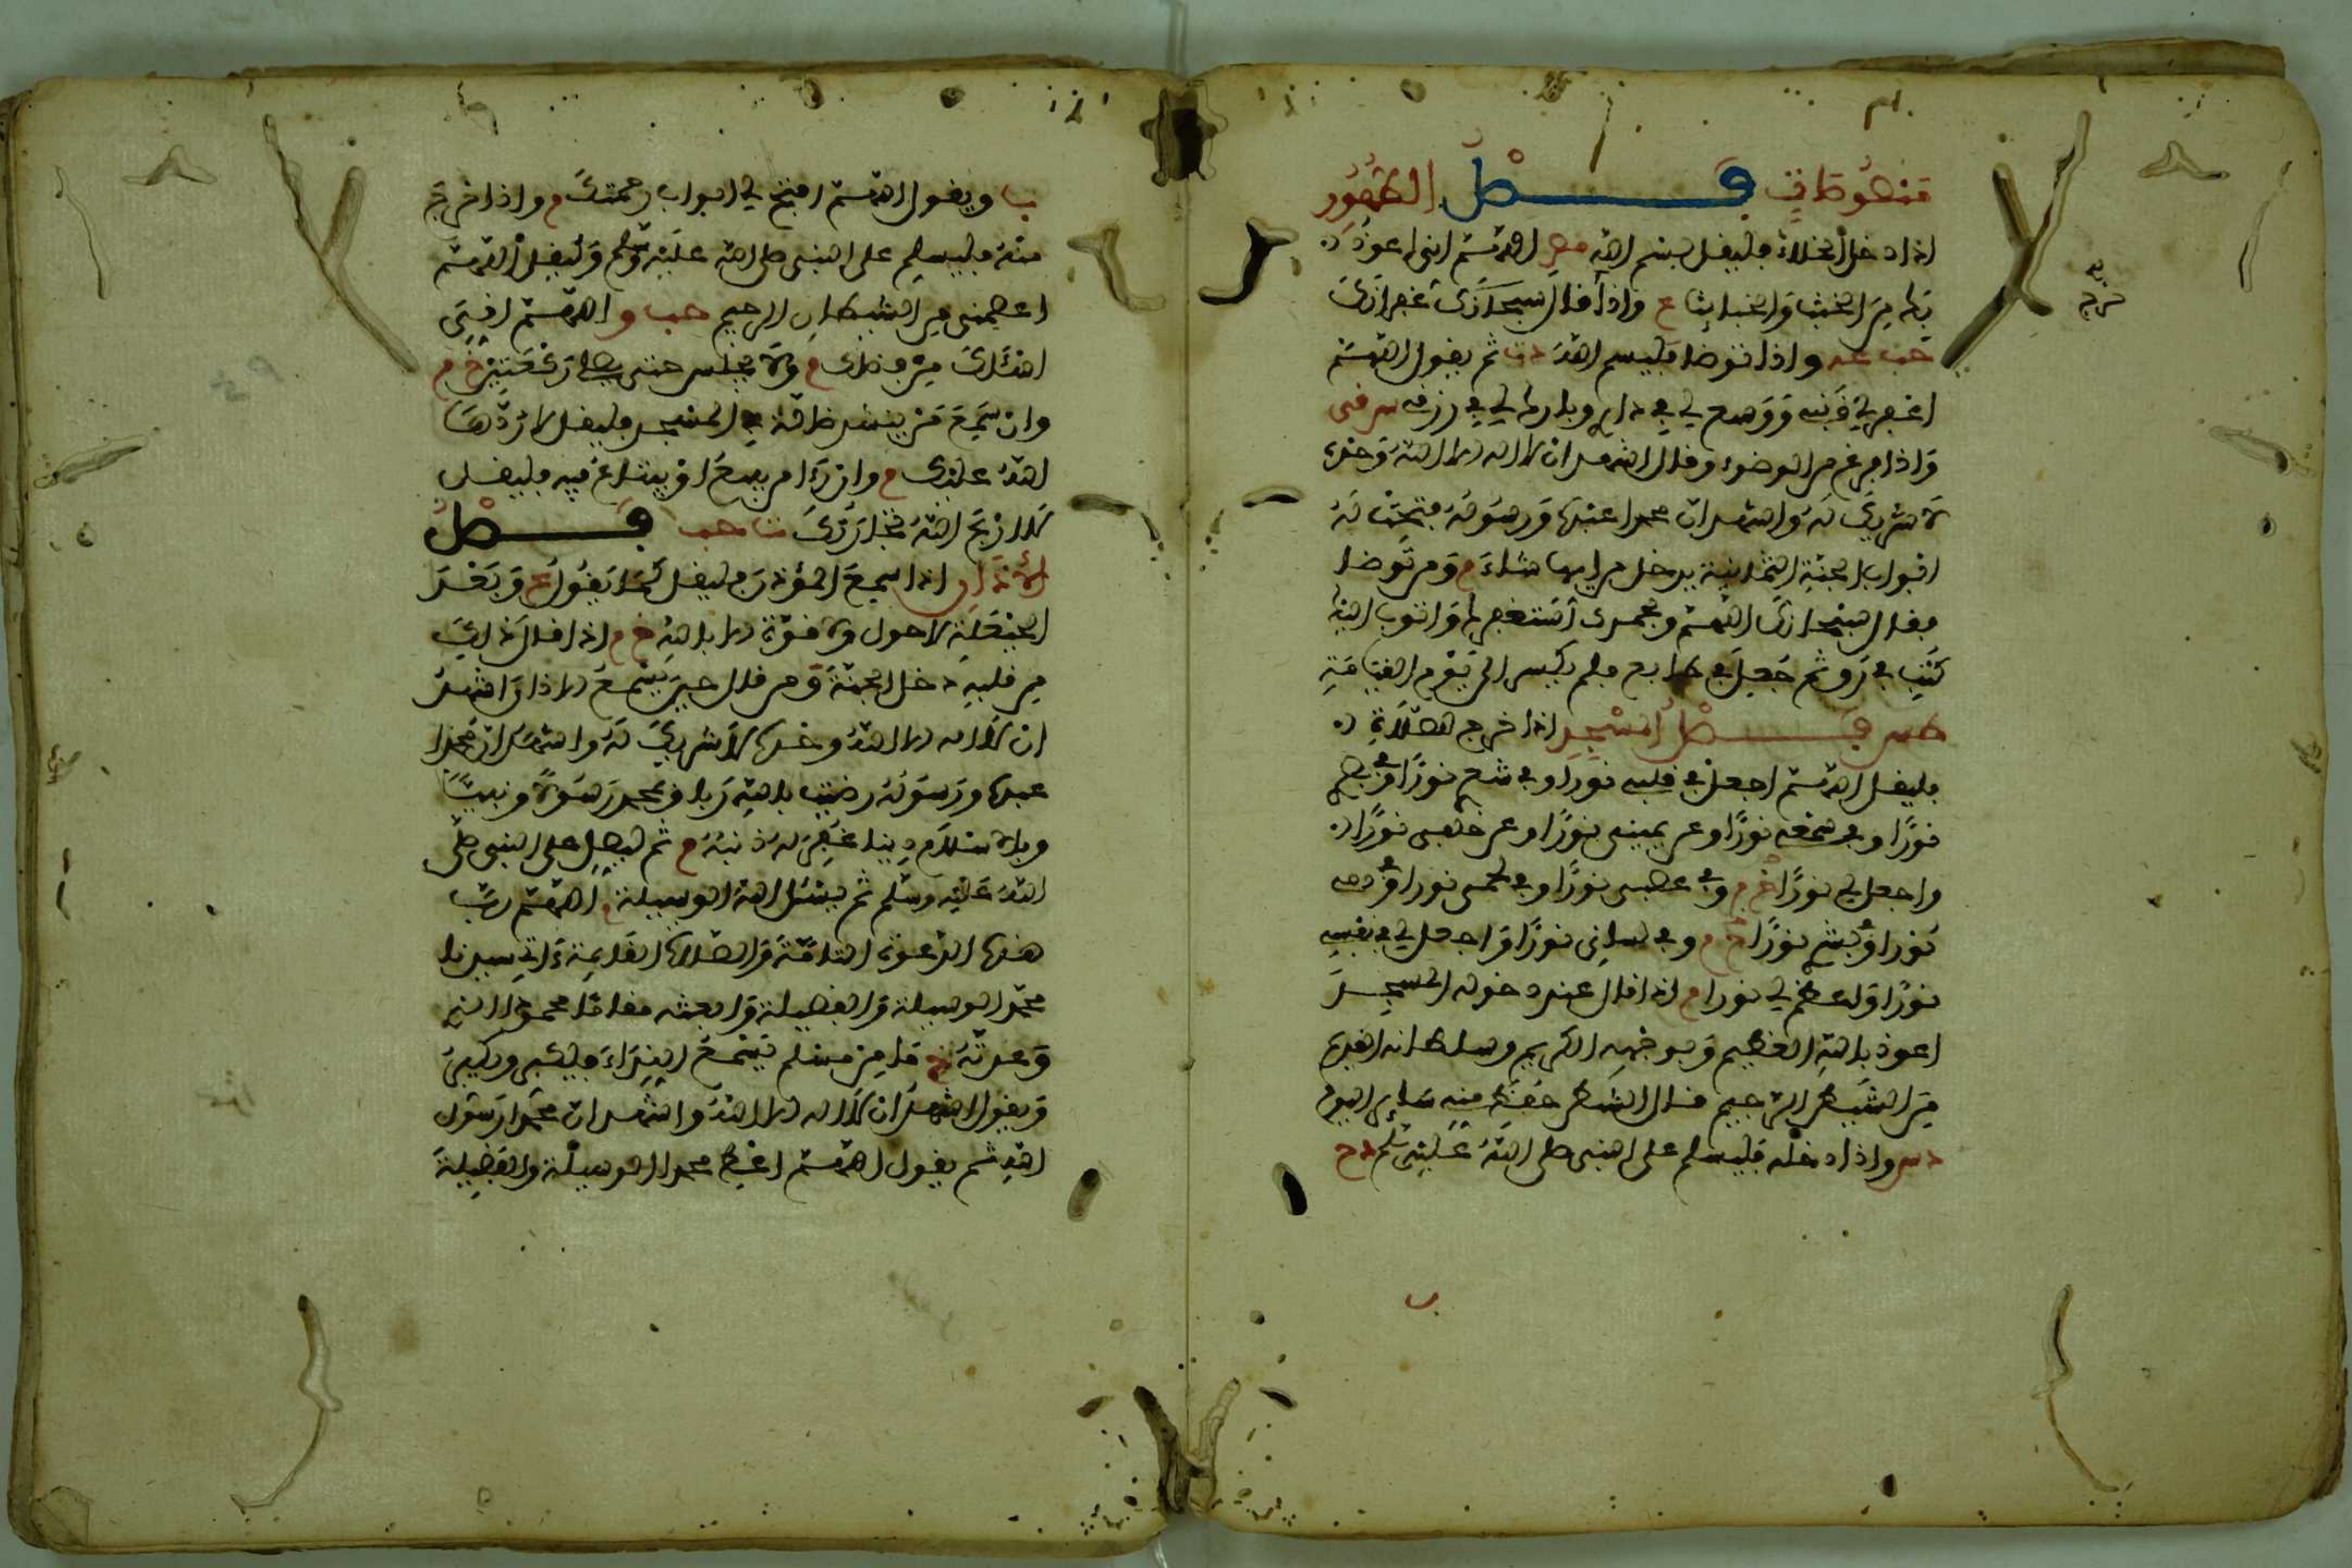 فصل الطهور
اذا دخل الخلاء فليقل بسم الله مص اللهم اني اعوذ
بك من الخبث والخبائث ع واذا قال سبحانك غفرانك
حب عه واذا توضا فليسم الله د ت ثم يقول اللهم
اغفر لي ذنبي ووسع لي في داري وبارك لي في رزقي س
واذا فرغ من الوضوء وقال اشهد ان لا اله الا الله وحده
لا شريك له واشهد ان محمدا عبده ورسوله فتحت له
ابواب الجنة الثمانية يدخل من ايها شاء م ومن توضا
فقال سبحانك اللهم وبحمدك استغفرك واتوب اليك
كتب في رق ثم جعل في طابع فلم يكسر الى يوم القيامة
طس فصل المسجد اذا خرج للصلاة
فليقل اللهم اجعل في قلبي نورا وفي
نورا وفي سمعي نورا وعن يميني نورا وعن خلفي نورا
واجعل لي نورا خ م وفي عصبي نورا وفي لحمي نورا وفي دمي
نورا وفي نورا خ م وفي لساني نورا واجعل لي في نفسي
نورا واعظم لي نورا م اذا قال عند دخوله المسجد
اعوذ بالله العظيم وبوجهه الكريم وسلطانه القديم
من الشيطن الرجيم قال الشيطن حفظ مني سائر اليوم
د س واذا دخله فليسلم على النبي صلى الله عليه وسلم د ح
ب
ب ويقول اللهم افتح لي ابواب رحمتك م واذا خرج
منه فليسلم على النبي صلى الله عليه وسلم وليقل اللهم
اعصمني من الشيطان الرجيم حب و اللهم اني
اسئلك من فضلك م ولا يجلس حتى يصلي ركعتين خ م
وان سمع من ينشد ضالة في المسجد فليقل لا ردها
الله عليك م وان رءا من يبيع او يبتاع فيه فليقل
لا اربح الله تجارتك ت حب فصل
الاذان اذا سمع المؤذن فليقل كما يقول ع وبعد
الحيعلة لا حول ولا قوة الا بالله خ م اذا قال ذلك
من قلبه دخل الجنة ومن قال حين يسمع الاذان اشهد
ان لا اله الا الله وحده لا شريك له واشهد ان محمدا
عبده ورسوله رضيت بالله ربا وبمحمد رسولا ونبيا
وبالاسلام دينا غفر له ذنبه م ثم ليصل على النبي صلى
الله عليه وسلم ثم يسئل الله الوسيلة اللهم رب
هذه الدعوة التامة والصلاة القائمة ءات سيدنا
محمدا الوسيلة والفضيلة وابعثه مقاما محمودا الذي
وعدته خ ما من مسلم يسمع النداء فيكبر ويكبر
ويقول اشهد ان لا اله الا الله واشهد ان محمدا رسول
الله ثم يقول اللهم اعط محمدا الوسيلة والفضيلة